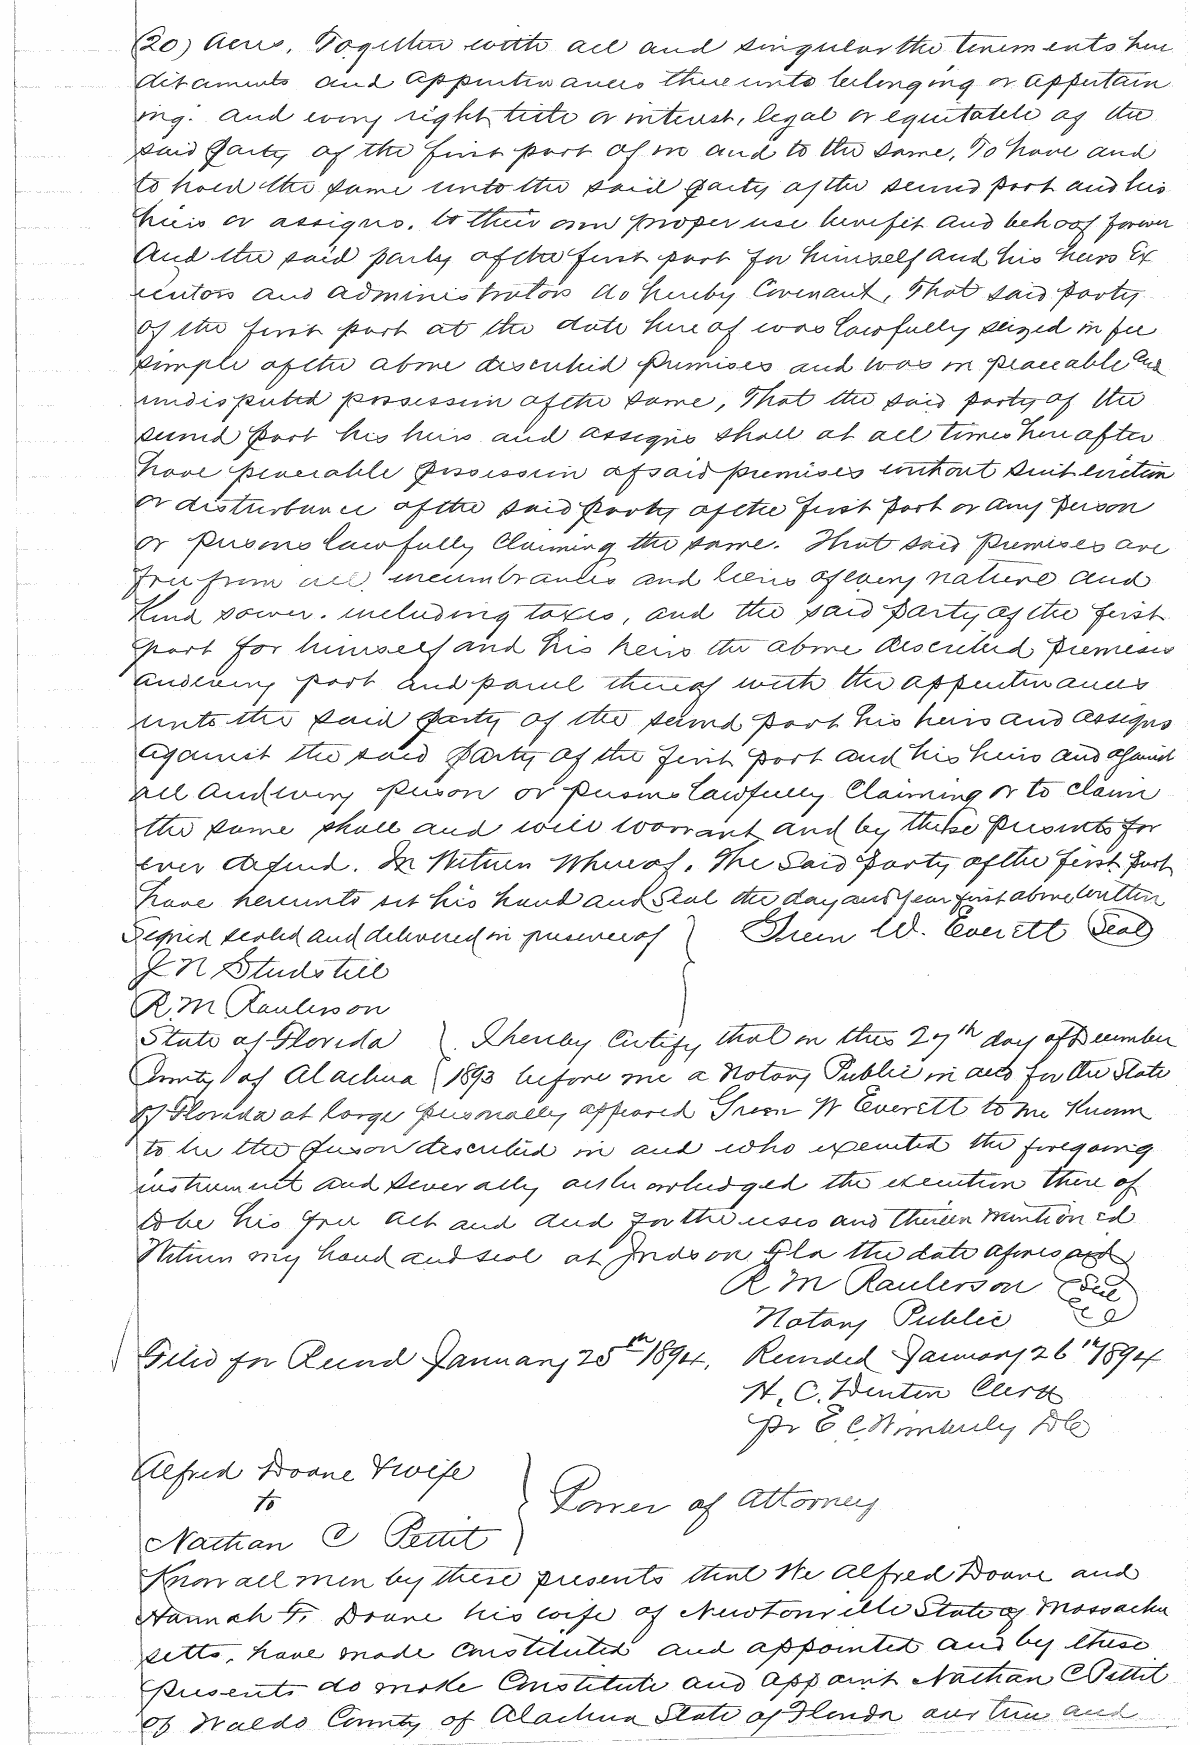 (20) Acres. Together with all and singular the tenements here
ditaments and appurtenances thereunto belonging or appertain
ing. and every right, title or interest, legal or equitable of the
said party of the first part of in and to the same, To have and
to hold the same unto the said party of the second part and his
heirs or assigns. to their own proper use benefit and behoof forever
And the said party of the first part for himself and his heirs Ex
ecutors and administrators do hereby Covenant, That said party
of the first part at the date here of was lawfully seized in fee
simple of the above described premises and was in peaceable and
undisputed possession of the same, That the said party of the
second part his heirs and assigns shall at all times here after
have peaceable possession of said premises without suit eviction
or disturbance of the said party of the first part or any person
or persons lawfully Claiming the same. That said premises are
free from all incumbrances and liens of every nature and
kind soever. including taxes, and the said party of the first
part for himself and his heirs the above described premises
and every part and parcel thereof with the appurtenances
unto the said party of the second part his heirs and assigns
against the said party of the first part and his heirs and against
all and every person or persons lawfully Claiming or to claim
the same shall and will warrant and by these presents for
ever defend. In Witness Whereof. The Said party of the first part
have hereunto set his hand and Seal the day and year first above written
Signed sealed and delivered in presence of } Green W. Everett (Seal)
J N Studstill
R. M. Raulerson
State of Florida } I hereby Certify that on this 27th day of December
County of Alachua { 1893 before me a Notary Public in and for the State
of Florida at large personally appeared Green W Everett to me Known
to be the person described in and who executed the foregoing
instrument and severally acknowledged the execution there of
to be his free act and deed for the uses and therein mention ed
Witness my hand and seal at Fla the date aforesaid
R M Raulerson (Seal)
Notary Public
Filed for Record January 25th 1894. Recorded January 26th 1894
H. C. Denton Clerk
pr E. C. Wimberly DC
Alfred Doane & wife
to } Power of Attorney
Nathan C Pettit
Know all men by these presents that We Alfred Doane and
Hannah F. Doane his wife of Newtonville State of Massachu
setts, have made Constituted and appointed and by these
presents do make Constitute and appoint Nathan C Pettit
of Waldo County of Alachua State of Florida our true and